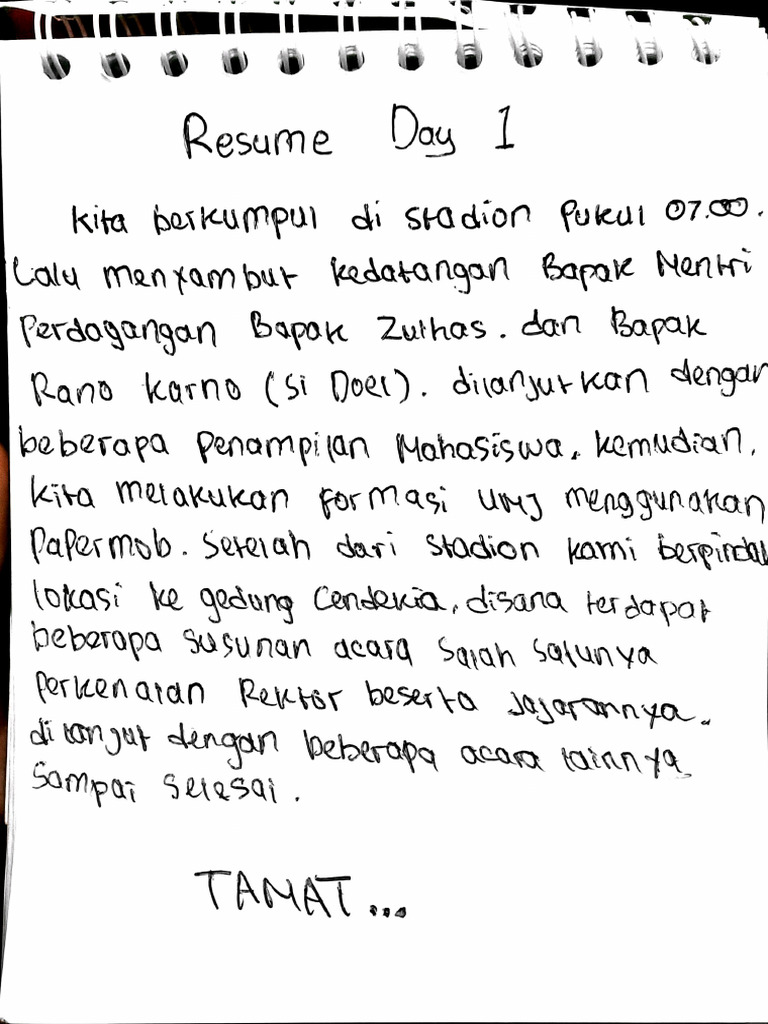 Resume Day 1
Kita berkumpul di stadion Pukul 07.00.
Lalu menyambut kedatangan Bapak Mentri
Perdagangan Bapak Zulhas. dan Bapak
Rano Karno (Si Doel). dilanjutkan dengan
beberapa Penampilan Mahasiswa, kemudian,
kita melakukan formasi UMJ menggunakan
Papermob. Setelah dari stadion kami berpindah
lokasi ke gedung Cendekia, disana terdapat
beberapa susunan acara Salah Satunya
Perkenalan Rektor beserta Jajarannya.
di lanjut dengan beberapa acara lainnya
Sampai Selesai.
TAMAT...